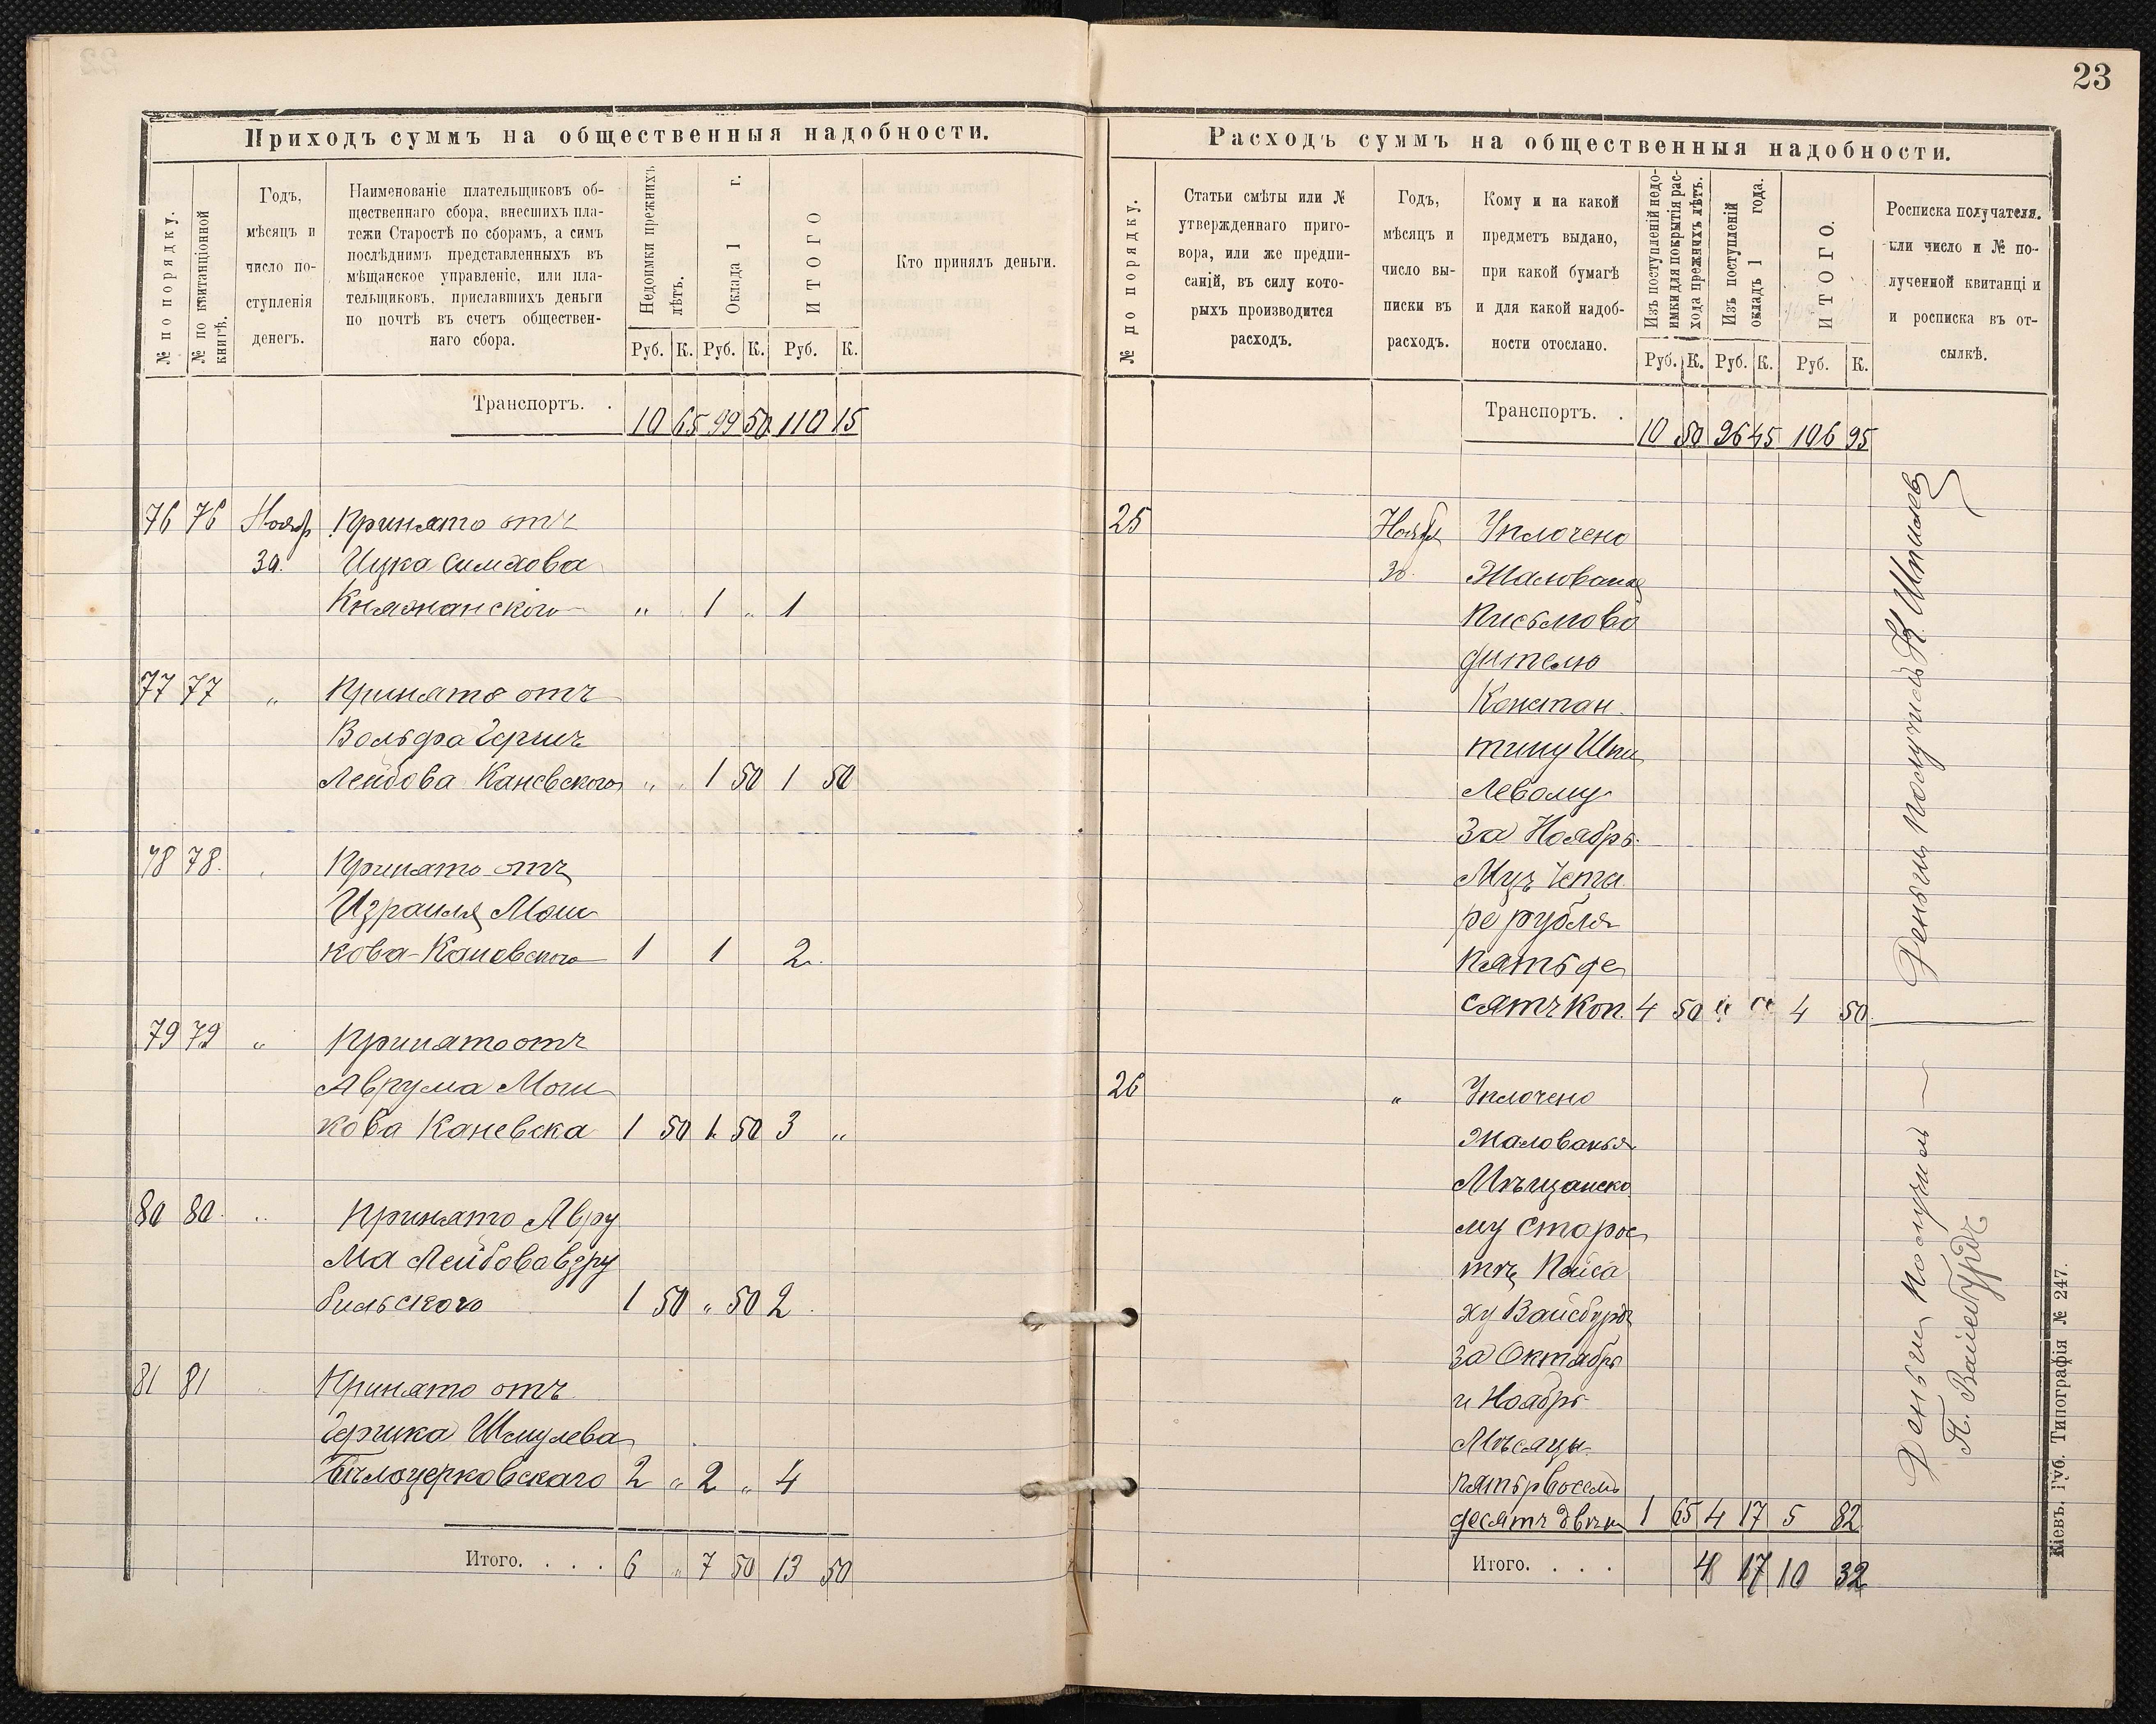 23
Приходъ суммъ на общественныя надобности.
№ по порядку.
№ по квитанціонной книгѣ.
Годъ,
мѣсяцъ и
число по-
ступленія
денегъ.
Наименованіе плательщиковъ об-
щественнаго сбора, внесшихъ пла-
тежи Старостѣ по сборамъ, а симъ
послѣднимъ представленныхъ въ
мѣщанское управленіе, или пла-
тельщиковъ, приславшихъ деньги
по почтѣ въ счетъ обществен-
наго сбора.
Недоимки прежнихъ
лѣтъ.
Оклада 1 г.
ИТОГО
Кто принялъ деньги.
Руб. К. Руб. К. Руб. К.
Транспортъ. . 10 65 99 50 110 15
76 76 Ноябр Принято отъ
30. Ицка Симхова
Княжанского „ 1 „ 1
77 77 „ Принято отъ
Вольфа Герш
Лейбова Каневского „ „ 1 50 1 50
78 78. Принято отъ
Израиля Мош
кова Каневского 1 1 2.
79 79 „ Принято отъ
Аврума Мош
кова Каневска 1 50 1 50 3 „
80 80. „ Принято Авру
ма Лейбова
бильского 1 50 „ 50 2
81 81 „ Принято отъ
Гершка Шмулева
Бѣлоцерковскаго 2 „ 2 „ 4
Итого. . . . 6 „ 7 50 13 50
Расходъ суммъ на общественныя надобности.
№ по порядку.
Статьи смѣты или №
утвержденнаго приго-
вора, или же предпи-
саній, въ силу кото-
рыхъ производится
расходъ.
Годъ,
мѣсяцъ и
число вы-
писки въ
расходъ.
Кому и на какой
предметъ выдано,
при какой бумагѣ
и для какой надоб-
ности отослано.
Изъ поступленій недо-
имки для покрытія рас-
хода прежнихъ лѣтъ.
Изъ поступленій
окладъ 1 года.
ИТОГО.
Росписка получателя.
или число и № по-
лученной квитанці и
и росписка въ от-
сылкѣ.
Руб. К. Руб. К. Руб. К.
Транспортъ. . 10 50 96 45 106 95
25 Ноябр Уплочено
30. Жалованья
Письмово
дителю
Констан
тину Шпи
левому
за Ноябрь
Мцъ Четы
ре рубля
пятьде
сятъ коп. 4 50 „ „ 4 50
Деньги получилъ К. Шпилев
26 „ Уплочено
Жалованья
Мѣщанско
му Старос
тѣ Пейса
ху Вайсбурд
за Октябрь
и Ноябрь
Мѣсяцы
пять р восемь
десятъ двѣ к 1 65 4 17 5 82
Деньги получилъ —
П. Вайсбурдъ
Итого. . . . 17 10 32
Кіевъ. Губ. Типографія № 247.